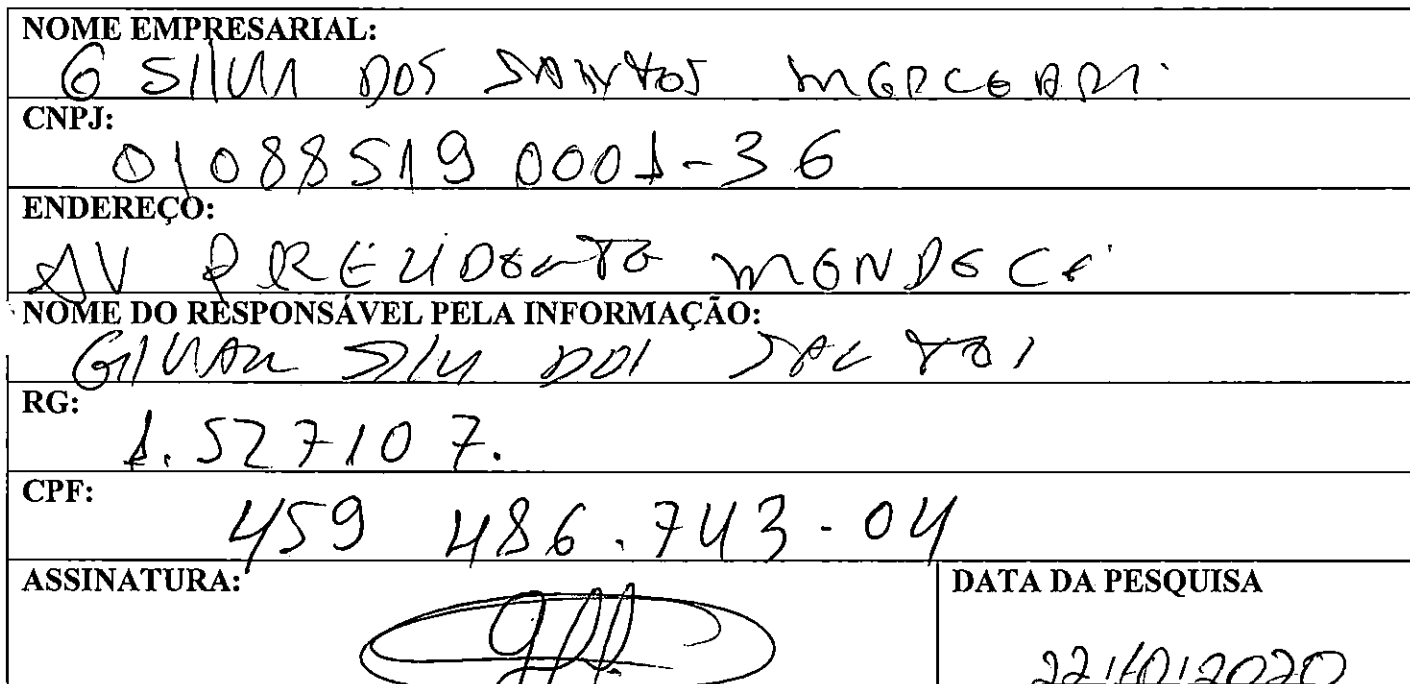 NOME EMPRESARIAL:
G SILVA DOS SANTOS MERCEARI
CNPJ:
01088519 0001-36
ENDEREÇO:
AV PREZIDENTE
NOME DO RESPONSÁVEL PELA INFORMAÇÃO:
GILVAN SILV DOS SANTOS
RG:
1.527107.
CPF:
459 486.743-04
ASSINATURA:
DATA DA PESQUISA
22/10/2020